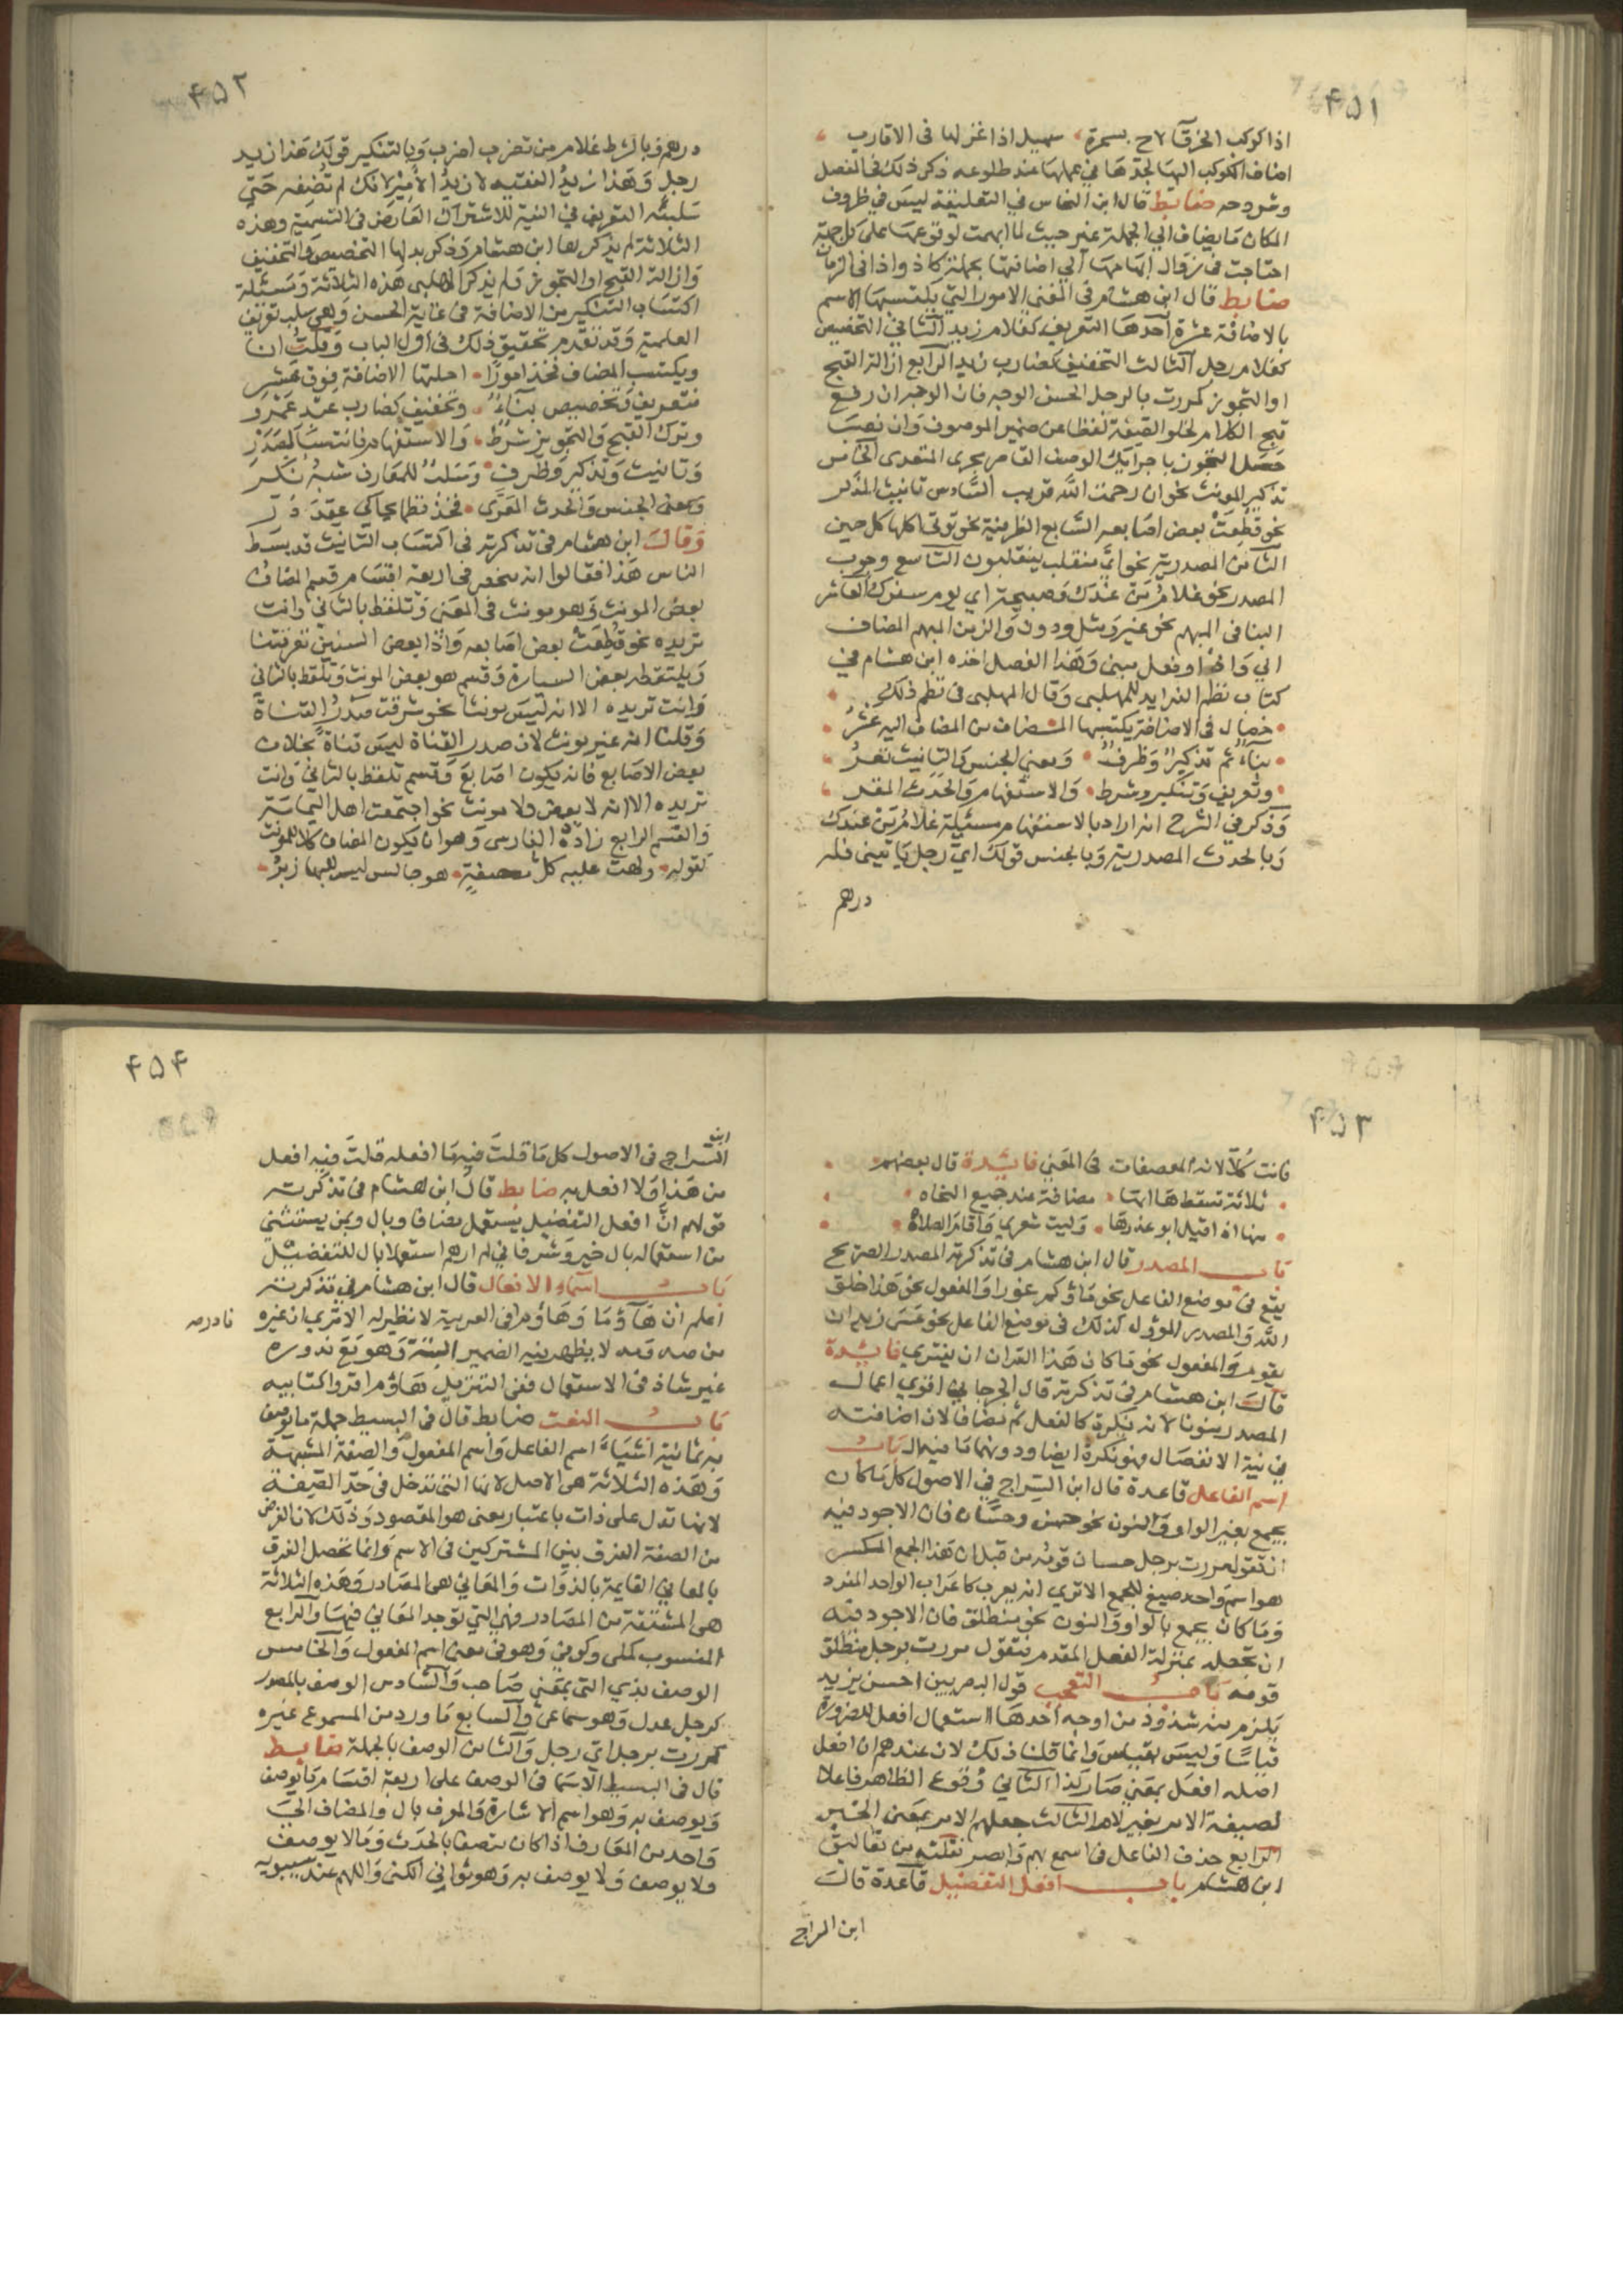 ٤٥١
اذا كوكب الخرقآ لاح بسحرة، سهيل اذا غزلها فى الاقارب
اضاف الكوكب اليها لجدها في عملها عند طلوعه ذكر ذلك في المفصل
وشروحه ضابط قال ابن النحاس في التعليقة ليس في ظروف
المكان ما يضاف الي الجملة غير حيث لما ابهمت لوقوعها على كل جهة
احتاجت في زوال ابهامها الي اضافتها بجملة كاذ واذا في الزمان
ضابط قال ابن هشام في المغني الامور التي يكتسبها الاسم
بالاضافة عشرة احدها التعريف كغلام زيد الثاني التخصيص
كغلام رجل الثالث التخفيف كضارب زيد الرابع ازالة القبح
او التجوز كمررت بالرجل الحسن الوجه فان الوجه ان رفع
قبح الكلام لخلو الصفة لفظا عن ضمير الموصوف وان نصب
حصل التجوز باجرايك الوصف القاصر مجرى المتعدي الخامس
تذكير المونث نحو ان رحمت الله قريب السادس تانيث المذكر
نحو قطعت بعض اصابعه السابع الظرفية نحو توتى اكلها كل حين
الثامن المصدرية نحو اي منقلب ينقلبون التاسع وجوب
المصدر نحو غلام من عندك وصبيحة اي يوم سفرك العاشر
البنا في المبهم نحو غير ومثل ودون والزمن المبهم المضاف
الي واذ او فعل مبني وهذا الفصل اخذه ابن هشام من
كتاب نظم الفرايد للمهلبي وقال المهلبى في نظم ذلك
خصال في الاضافة يكتسبها المضاف من المضاف اليه عشر
بناء ثم تذكير وظرف ومعني الجنس والتانيث تعر
وتعريف وتنكير وشرط والاستفهام والحدث المقر
وذكر في الشرح انه اراد بالاستفهام مسئلة غلام من عندك
وبالحدث المصدرية وبالجنس قولك اي رجل ياتيني فله
درهم
٤٥٢
درهم وبالشرط غلام من تضرب اضرب وبالتنكير قولك هذا زيد
رجل وهذا زيد الفقيه لا زيد الامير لانك لم تضفه حتي
سلبته التعريف في النية للاشتراك العارض في التسمية وهذه
الثلاثة لم يذكرها ابن هشام وذكر بدلها التخصيص والتخفيف
وازالة القبح او التجوز ولم يذكر المهلبي هذه الثلاثة ومسئلة
اكتساب التنكير من الاضافة في غاية الحسن وهي سلب تعريف
العلمية وقد تقدم تحقيق ذلك في اول الباب وقلت انا
ويكتسب المضاف فخذ امورا احلتها الاضافة فوق عشر
فتعريف وتخصيص بناء وتخفيف كضارب عبد عمرو
وترك القبح والتجويز شرط والاستفهام فانتسب لصدر
وتانيث وتذكير وظرف وسلب للمعارف شبه نكر
ومعنى الجنس والحدث المعزي فخذ نظما يحاكي عقد در
وقال ابن هشام في تذكرته في اكتساب التانيث قد بسط
الناس هذا فقالوا انه ينحصر في اربعة اقسام قسم المضاف
بعض المونث وهو مونث في المعنى وتلفظ بالثاني وانت
تريده نحو قطعت بعض اصابعه واذا بعض السنين تعرقتنا
ويلتقطه بعض السيارة وقسم هو بعض المونث وتلفظ بالثاني
وانت تريده الا انه ليس مونثا نحو شرقت صدر القناة
وقلنا انه غير مونث لان صدر القناة ليس قناة بخلاف
بعض الاصابع فانه يكون اصابع وقسم تلفظ بالثاني وانت
تريده الا انه لا بعض ولا مونث نحو اجتمعت اهل اليمامة
والقسم الرابع زاده الفارسي وهو ان يكون المضاف كلا للمونث
كقوله ولهت عليه كل معصفة هوجا ليس للبها زبر
٤٥٣
فانت كلا لانه المعصفات في المعني فائدة قال بعضهم
ثلاثة تسقط هاآتها مضافة عند جميع النحاه
منها اذا قيل ابو عذرها وليت شعري واقام الصلاه
باب المصدر قال ابن هشام في تذكرته المصدر الصريح
يقع في موضع الفاعل نحو ماؤكم غورا والمفعول نحو هذا خلق
الله والمصدر المؤول كذلك في موضع الفاعل نحو عسى زيد ان
يقوم والمفعول نحو ما كان هذا القران ان يفتري فائدة
قال ابن هشام في تذكرته قال الجرجاني اقوي اعمال
المصدر منونا لانه نكرة كالفعل ثم مضافا لان اضافته
في نية الانفصال فهو نكرة ايضا ودونهما ما فيه ال باب
اسم الفاعل قاعدة قال ابن السراج في الاصول كل ما كان
يجمع بغير الواو والنون نحو حسن وحسان فان الاجود فيه
ان تقول مررت برجل حسان قومه من قبل ان هذا الجمع المكسر
هو اسم واحد صيغ للجمع الا تري انه يعرب كاعراب الواحد المفرد
وما كان يجمع بالواو والنون نحو منطلق فان الاجود فيه
ان تجعله بمنزلة الفعل المقدم فتقول مررت برجل منطلق
قومه باب التعجب قول البصريين احسن بزيد
يلزم منه شذوذ من اوجه احدها استعمال افعل للصيرورة
قياسا وليس بقياس وانما قلنا ذلك لان عندهم ان افعل
اصله افعل بمعني صار كذا الثاني وقوع الظاهر فاعلا
لصيغة الامر بغير لام الثالث جعلهم الامر بمعنى الخبر
الرابع حذف الفاعل في اسمع بهم وابصر نقلته من تعاليق
ابن هشام باب افعل التفضيل قاعدة قال
ابن السراج
٤٥٤
ابن
السراج في الاصول كل ما قلت فيه ما افعله قلت فيه افعل
من هذا ولا افعل به ضابط قال ابن هشام في تذكرته
قولهم ان افعل التفضيل يستعمل مضافا وبال وبمن يستثني
من استعماله بال خير وشر فاني لم ارهم استعملا بال للتفضيل
باب اسماء الافعال قال ابن هشام في تذكرته
اعلم ان هاؤما وهاؤم في العربية لا نظير له الا تري ان غيره
من صه ومه لا يظهر فيه الضمير البتة وهو مع ندوره
نادر صه
غير شاذ في الاستعمال ففي التنزيل هاؤم اقروا كتابيه
باب النعت ضابط قال في البسيط جملة ما يوصف
به ثمانية اشياء اسم الفاعل واسم المفعول والصفة المشبهة
وهذه الثلاثة هي الاصل لانها التي تدخل في حد الصفة
لانها تدل على ذات باعتبار معنى هو المقصود وذلك لان الغرض
من الصفة الفرق بين المشتركين في الاسم وانما تحصل الفرق
بالمعاني القايمة بالذوات والمعاني هي المصادر وهذه الثلاثة
هي المشتقة من المصادر فهي التي توجد المعاني فيها والرابع
المنسوب كمكي وكوفي وهو في معنى اسم المفعول والخامس
الوصف بذي التي بمعني صاحب والسادس الوصف بالمصدر
كرجل عدل وهو سماعي والسابع ما ورد من المسموع غيره
كمررت برجل اي رجل والثامن الوصف بالجملة ضابط
قال في البسيط الاسما في الوصف على اربعة اقسام ما يوصف
ويوصف به وهو اسم الاشارة والمعرف بال والمضاف الي
واحد من المعارف اذا كان متصفا بالحدث وما لا يوصف
ولا يوصف ولا يوصف به وهو ثواني الكنى واللهم عند سيبويه